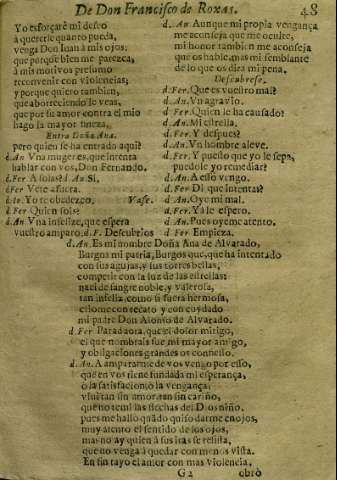 De Don Francisco de Roxas. 48
Yo esforçarè mi deseo
à quererle quanto pueda,
venga Don Iuan à mis ojos;
que porque bien me parezca,
à mis motivos presumo
reconvenir con violencias;
y porque quiero tambien,
que aborreciendole veas,
que por su amor contra el mio
hago la mayor fineza.
Entra Doña Ana.
pero quien se ha entrado aqui?
d.An Vna muger es, que intenta
hablar con vos, Don Fernando.
d.Fer A solas? d.An Si,
d.Fer Vete afuera.
Yo te obedezco. Vase.
d.Fer Quien sois?
d.An Vna infelize, que espera
vuestro amparo. d.F. Descubrios
d.An Aunque mi propia vengança
me aconseja que me oculte,
mi honor tambien me aconseja
que os hable, mas mi semblante
de lo que os dira mi pena.
Descubrese.
d.Fer. Que es vuestro mal?
d.An Vn agravio.
d.Fer Quien le ha causado?
d.An. Mi estrella.
d.Fer. Y despues?
d.An. Vn hombre aleve.
d.Fer. Y puesto que yo le sepa,
puedole yo remediar?
d.An. A esso vengo.
d.Fer Di que intentas?
d.An. Oye mi mal.
d.Fer. Ya le espero.
d.An. Pues oyeme atento.
d.Fer Empieza.
d.An. Es mi nombre Doña Ana de Alvarado,
Burgos mi patria, Burgos que, que ha intentado
con sus agujas, y sus torres bellas,
competir con la luz de las estrellas:
naci de sangre noble, y valerosa,
tan infeliz como si fuera hermosa,
criome con recato, y con cuydado
mi padre Don Alonso de Alvarado.
d.Fer Parad aora, que el dolor mitigo,
el que nombrais fue mi mayor amigo,
y obligaciones grandes os confiesso.
d.An. A ampararme de vos vengo por esso,
que en vos tiene fundada mi esperança,
ò la satisfacion, ò la vengança;
vivì tan sin amor, tan sin cariño,
que no temì las flechas del Dios niño,
pues me hallò quãdo quiso darme enojos,
muy atento el sentido de los ojos,
mas no ay quien à sus iras se resista,
que no venga à quedar con menos vista.
En fin rayo el amor con mas violencia,
G 2 obrò